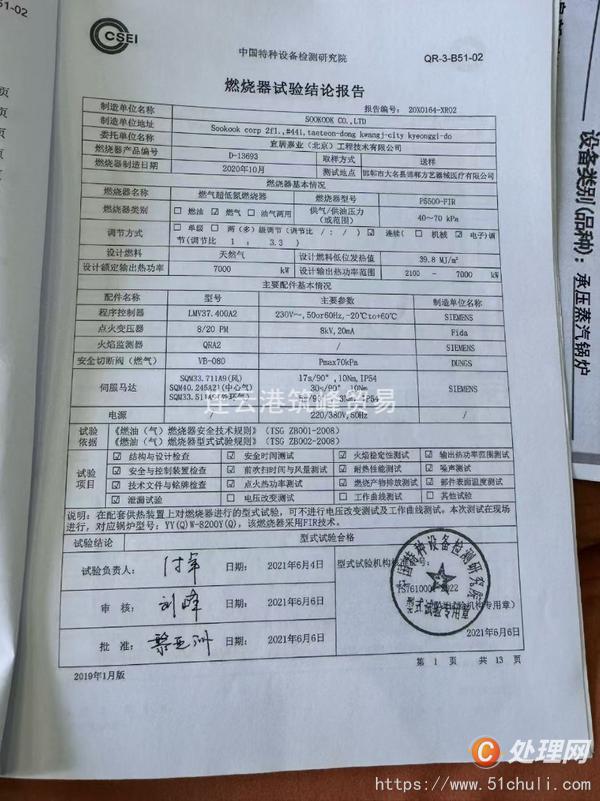 51-02
CSEI
中国特种设备检测研究院
QR-3-B51-02
燃烧器试验结论报告
报告编号: 20X0164-XR02
制造单位名称 SOOKOOK CO.,LTD
制造单位地址 Sookook corp 2fl.,#441,taeteon-dong kwangj-city kyeonggi-do
委托单位名称 宜居嘉业(北京)工程技术有限公司
燃烧器产品编号 D-13693 取样方式 送样
燃烧器制造日期 2020年10月 测试地点 邯郸市大名县邯郸方艺器械医疗有限公司
燃烧器基本情况
燃烧器名称 燃气超低氮燃烧器 燃烧器型号 P5500-FIR
燃烧器类别 □ 燃油 ☑ 燃气 □ 油气两用 供气/供油压力(或范围) 40~70 kPa
调节方式 □ 单级 □ 两(多)级调节(调节比 / : / ) ☑ 连续( □ 机械 ☑ 电子)调节(调节比 1 : 3.3 )
设计燃料 天然气 设计燃料低位发热值 39.8 MJ/m³
设计额定输出热功率 7000 kW 设计输出热功率范围 2100 - 7000 kW
主要配件基本情况
配件名称 型号 主要参数 制造单位名称
程序控制器 LMV37.400A2 230V~,50or60Hz,-20℃to+60℃ SIEMENS
点火变压器 8/20 PM 8kV,20mA Fida
火焰监测器 QRA2 / SIEMENS
安全切断阀(燃气) VB-080 Pmax70kPa DUNGS
伺服马达 SQM33.711A9(风) 17s/90°,10Nm,IP54 SIEMENS
SQM40.245A21(中心气) 30s/90°,10Nm
SQM33.511A9(外环气) 3Nm,IP54
电源 220/380V,60Hz /
试验依据 《燃油(气)燃烧器安全技术规则》(TSG ZB001-2008)
《燃油(气)燃烧器型式试验规则》(TSG ZB002-2008)
试验项目 ☑ 结构与设计检查 ☑ 安全时间测试 ☑ 火焰稳定性测试 ☑ 输出热功率范围测试
☑ 安全与控制装置检查 ☑ 前吹扫时间与风量测试 ☑ 耐热性能测试 ☑ 噪声测试
☑ 技术文件与铭牌检查 ☑ 点火热功率测试 ☑ 燃烧产物排放测试 ☑ 部件表面温度测试
☑ 泄漏试验 □ 电压改变测试 □ 工作曲线测试 □ 其他试验
说明:在配套供热装置上对燃烧器进行的型式试验,可不进行电压改变测试及工作曲线测试。本次测试在现场
进行,对应锅炉型号:YY(Q)W-8200Y(Q),该燃烧器采用FIR技术。
试验结论 型式试验合格
试验负责人: 日期: 2021年6月4日 型式试验机构核准证号:
审 核: 刘峰 日期: 2021年6月6日
批 准: 黎亚洲 日期: 2021年6月6日
中国特种设备检测研究院
2021年6月6日
2019年1月版
第 1 页 共 13 页
设备类别(品种):承压蒸汽锅炉
连云港筑峰贸易
处理网
https://www.51chuli.com/